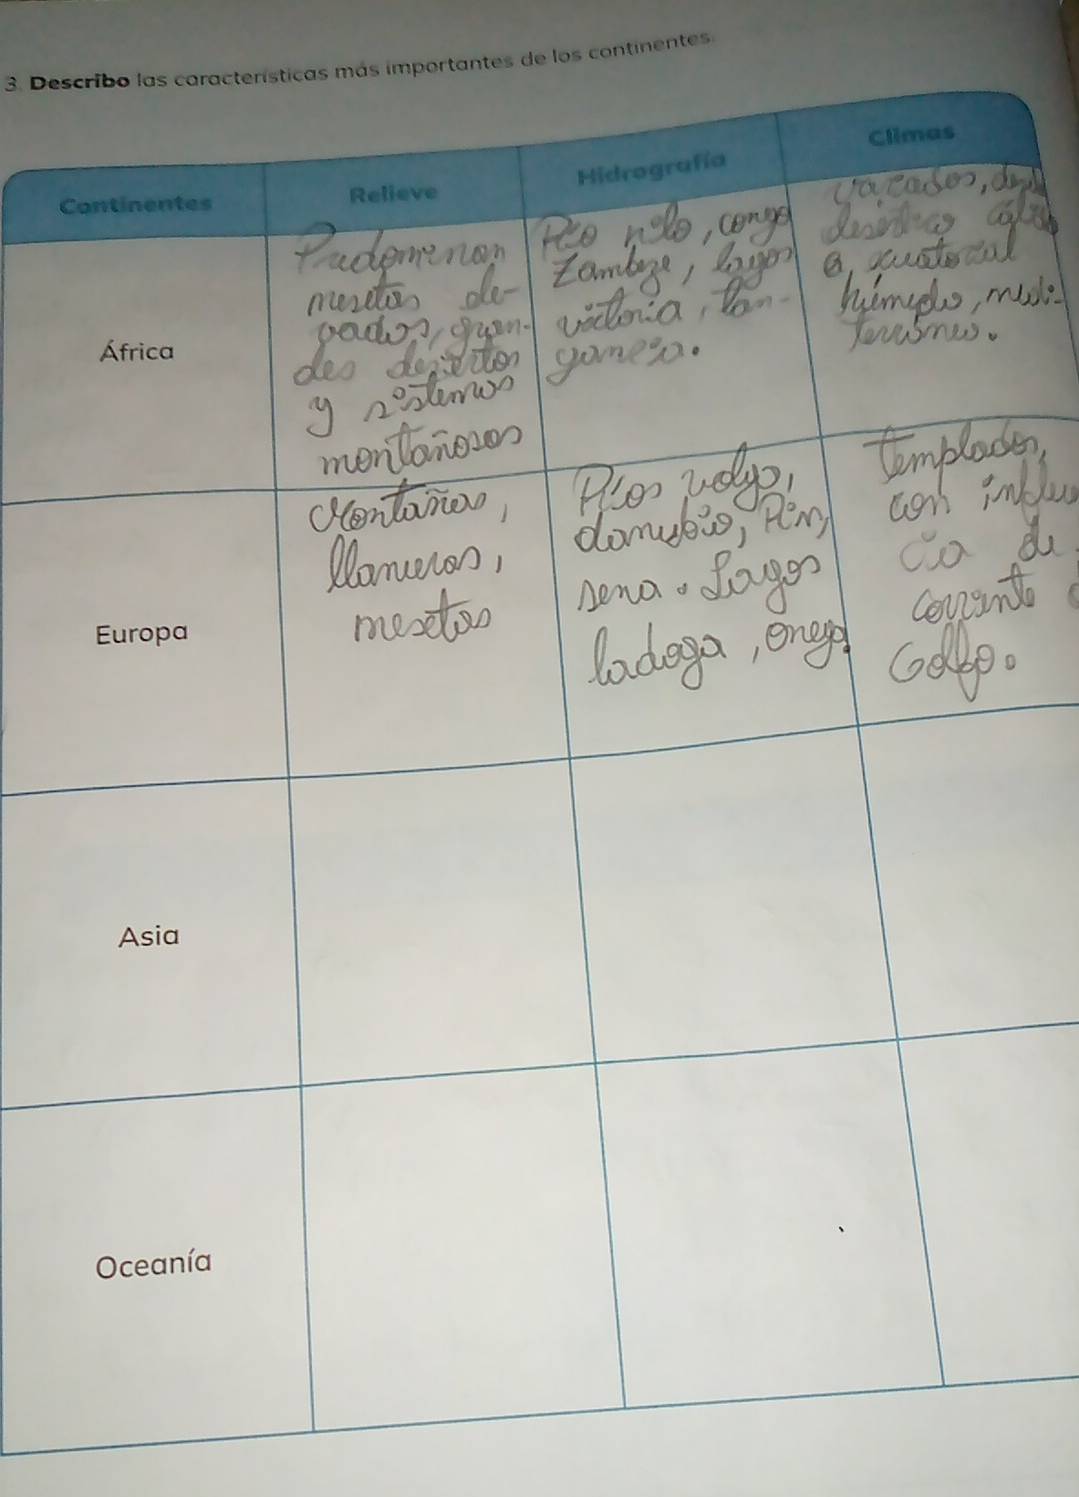 3. Describo las características más importantes de los continentes.
Continentes
Relieve
Hidrografía
Climas
África
Predominan
mesetas ele-
vadas, gran-
des desiertos
y sistemas
montañosos
Río nilo, congo
Zambeze, lagos
victoria, tan-
ganesa.
variados, des
desértico cálid
a, ecuatorial
húmedo, medi-
terráneo.
Europa
Montañas,
llanuras,
mesetas
Ríos volga,
danubio, Rin,
sena. Lagos
ladoga, onega
templados,
con influen
cia de
corriente
Golfo.
Asia
Oceanía